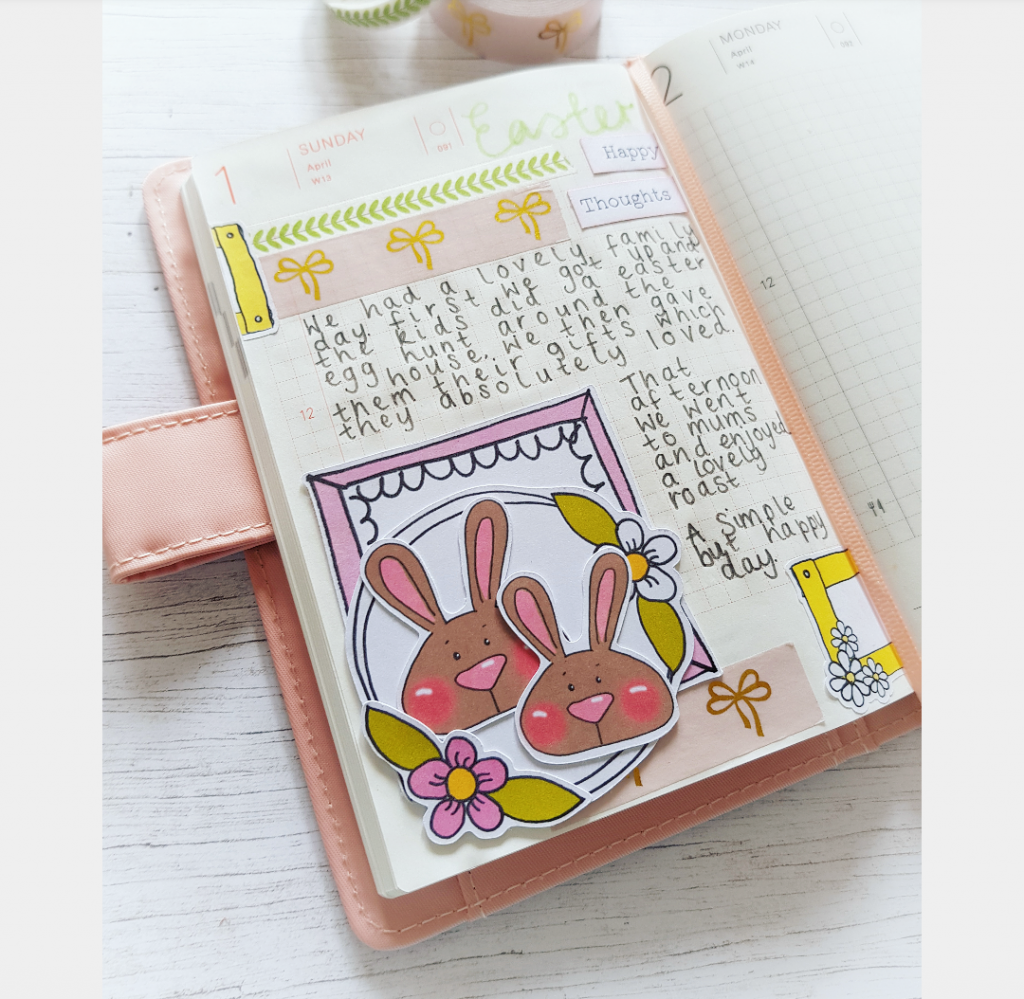 1
SUNDAY
April
W13
D91
Easter
Happy
Thoughts
We had a lovely family
day. first we got up and
the kids did a easter
egg hunt around the
house, we then gave
them their gifts which
they absolutely loved.
12
That
afternoon
we went
to mums
and enjoyed
a lovely
roast
A simple
but happy
day.
2
MONDAY
April
W14
12